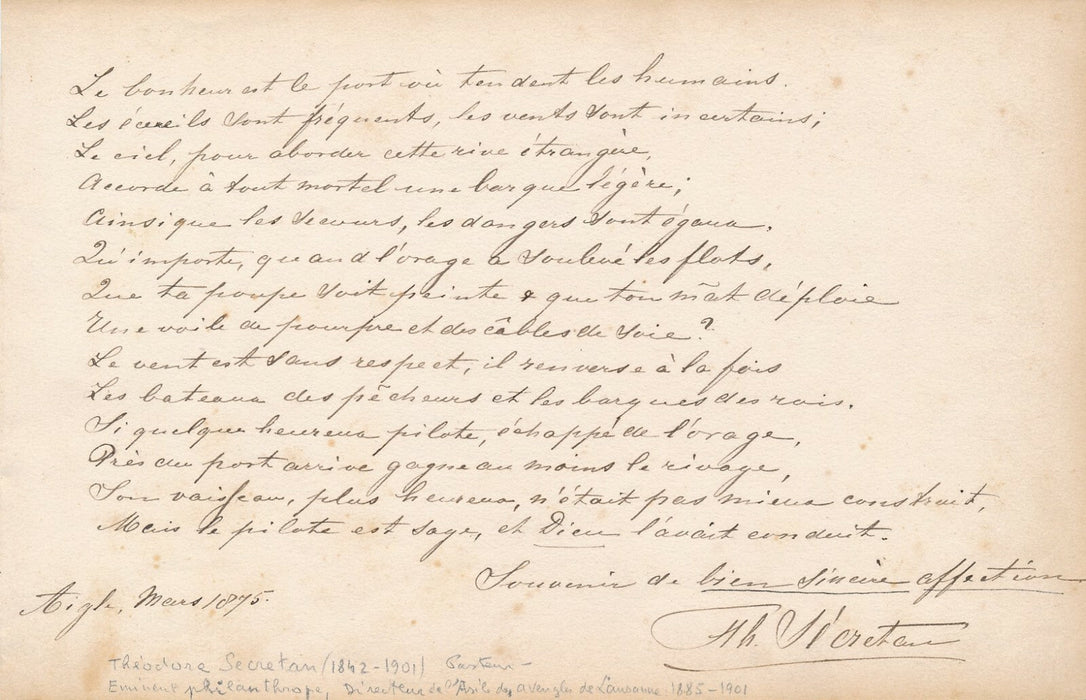 Le bonheur est le port où tendent les humains.
Les écueils sont fréquents, les vents sont incertains;
Le ciel, pour aborder cette rive étrangère,
Accorde à tout mortel une barque légère;
Ainsi que les secours, les dangers sont égaux.
Qu'importe, quand l'orage a soulevé les flots,
Que ta poupe soit peinte & que ton mât déploie
Une voile de pourpre et des câbles de soie?
Le vent est sans respect, il renverse à la fois
Les bateaux des pêcheurs et les barques des rois.
Si quelque heureux pilote, échappé de l'orage,
Près du port arrive gagne au moins le rivage,
Son vaisseau, plus heureux, n'était pas mieux construit,
Mais le pilote est sage, et Dieu l'avait conduit.
Souvenir de bien sincère affection
Aigle, Mars 1875.
Th. Sécretan
Théodore Secretan (1842-1901) Pasteur -
Eminent philanthrope, Directeur de l'Asile des aveugles de Lausanne 1885-1901